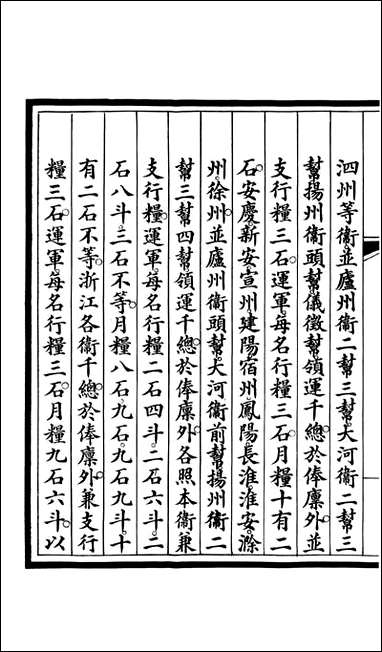 泗州等衞並廬州衞二幫三幫大河衞二幫三
幫揚州衞頭幫儀徵幫領運千總於俸廩外並
支行糧三石運軍每名行糧三石月糧十有二
石安慶新安宣州建陽宿州鳳陽長淮淮安滁
州徐州並廬州衞頭幫大河衞前幫揚州衞二
幫三幫四幫領運千總於俸廩外各照本衞兼
支行糧運軍每名行糧二石四斗二石六斗二
石八斗三石不等月糧八石九石九石九斗十
有二石不等浙江各衞千總於俸廩外兼支行
糧三石運軍每名行糧三石月糧九石六斗以